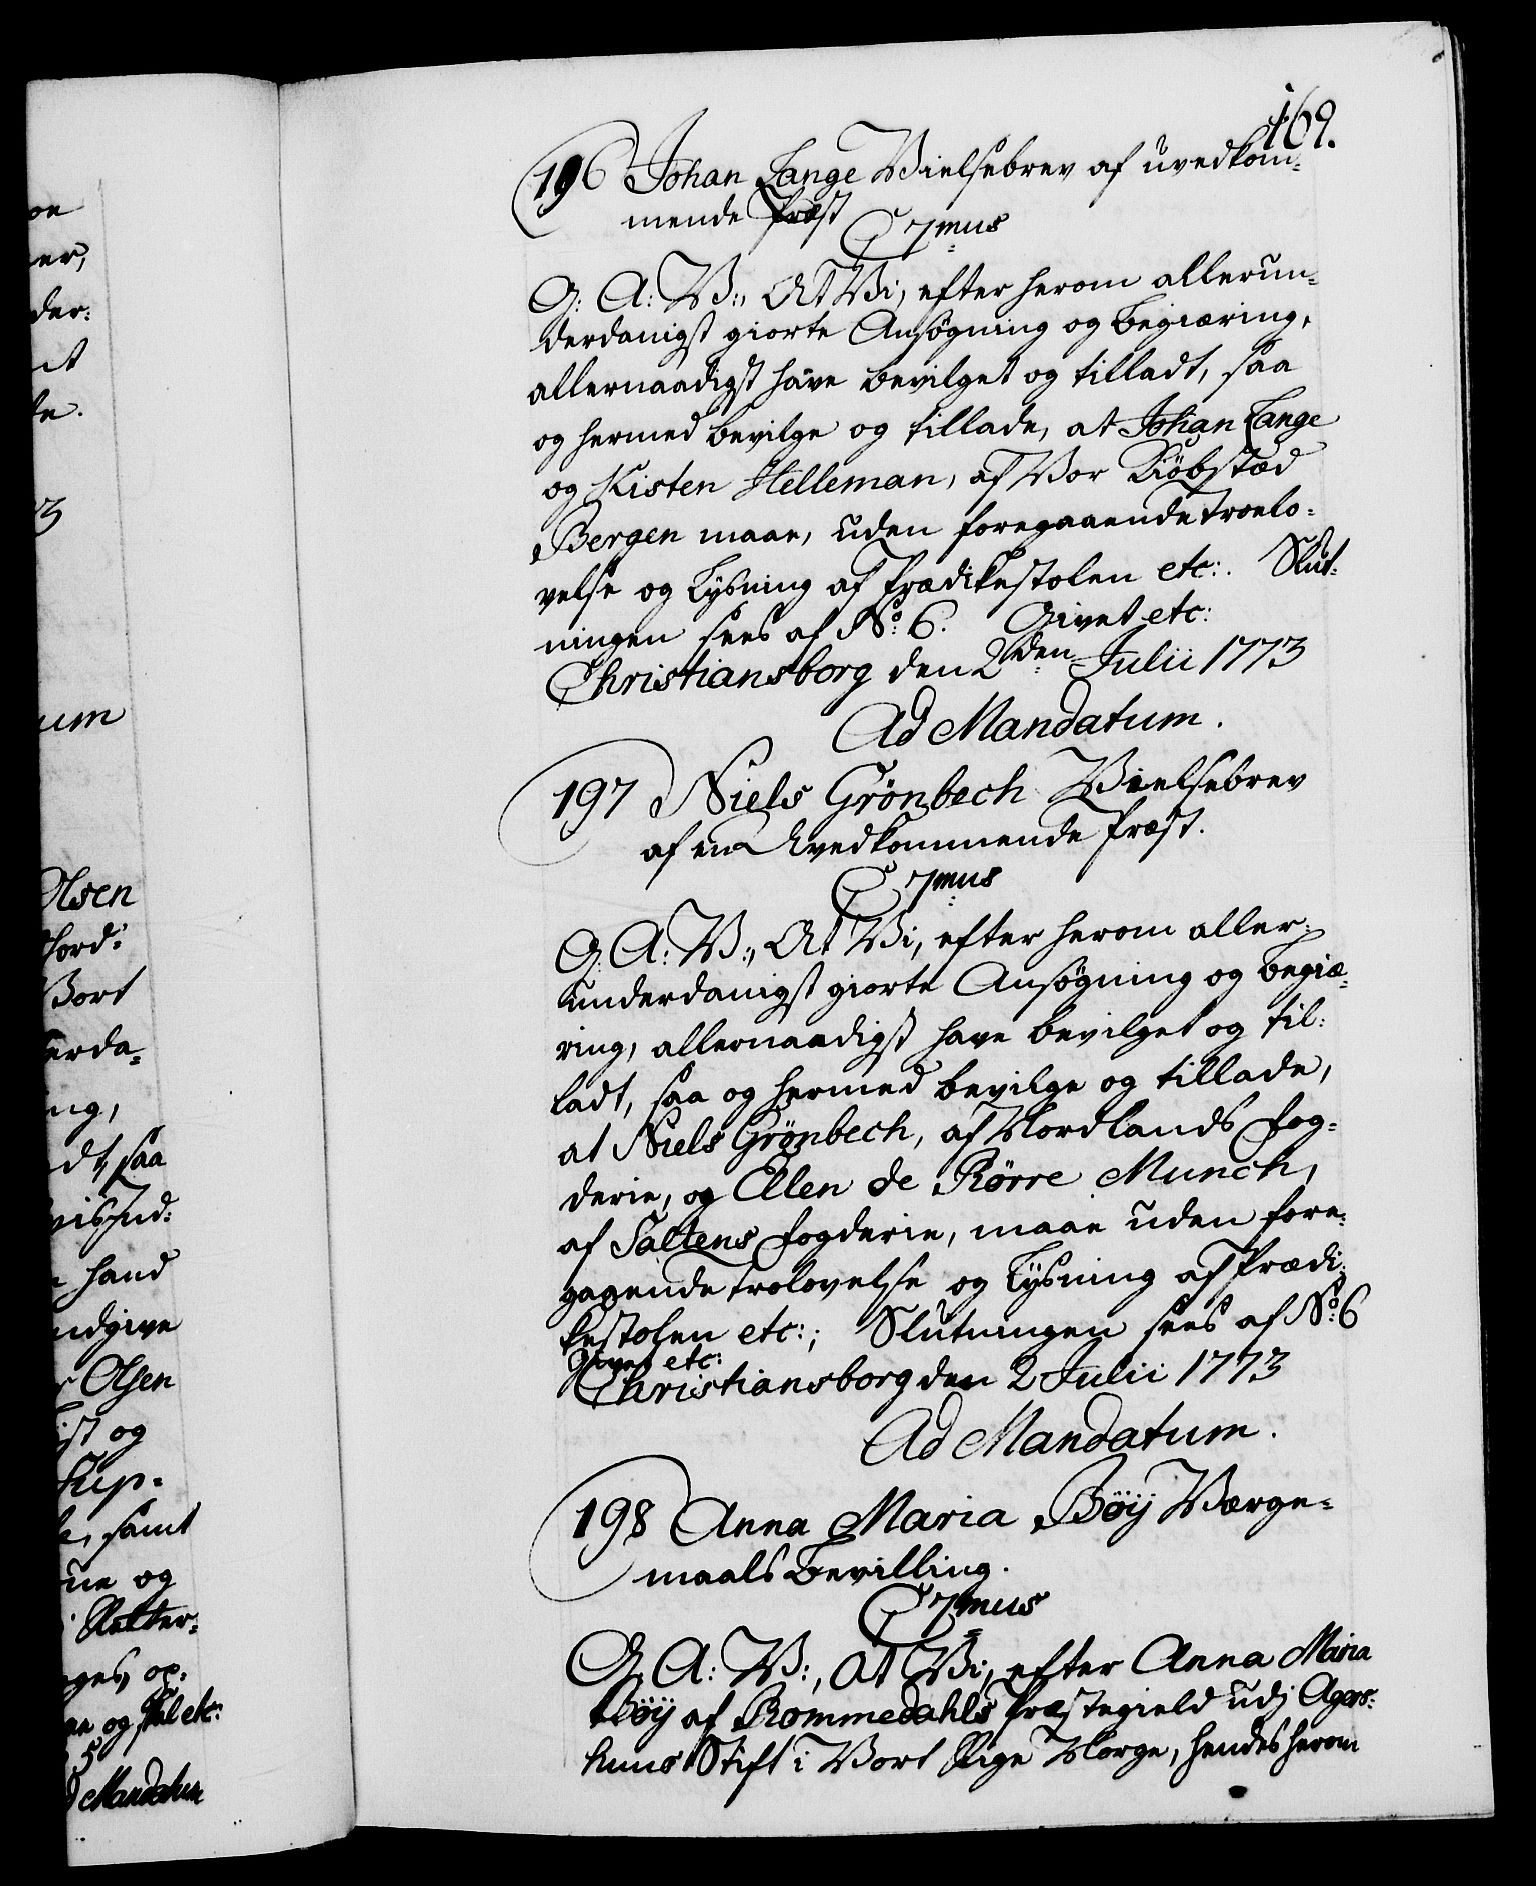 169.
196 Johan Lange Vielsebrev af uvedkom-
mende Præst
C 7mus
G: A: V:, At Vi, efter herom allerun-
derdanigst giorte Ansøgning og Begiæring,
allernaadigst have bevilget og tilladt, saa
og hermed bevilge og tillade, at Johan Lange
og Kisten Helleman, af Vor Kiøbstæd
Bergen maae, uden foregaaende Troelo-
velse og Lysning af Prædikestolen etc:. Slut-
ningen sees af No: 6. Givet etc:
Christiansborg den 2den Julii 1773
Ad Mandatum.
197 Niels Grönbech Vielsebrev
af en Uvedkommende Præst.
C 7mus
G: A: V:, At Vi, efter herom aller-
underdanigst giorte Ansøgning og Begiæ-
ring, allernaadigst have bevilget og til-
ladt, saa og hermed bevilge og tillade,
at Niels Grönbech, af Nordlands Fog-
derie, og Ellen de Rörre Munch,
af Saltens Fogderie, maae uden fore-
gaaende Trolovelse og Lysning af Prædi-
kestolen etc:; Slutningen sees af No: 6
Givet etc:
Christiansborg den 2 Julii 1773
Ad Mandatum.
198 Anna Maria Böÿ Værge-
maals Bevilling.
C 7mus
G: A: V:, At Vi, efter Anna Maria
Böÿ af Rommedahls Præstegield udj Agers-
huus Stift i Vort Rige Norge, hendes herom
um
Olsen
Bort
erda-
ing,
dt, saa
hand
Olsen
ist og
samt
og
Retter-
ges, op-
og etc:
5
Mandatum